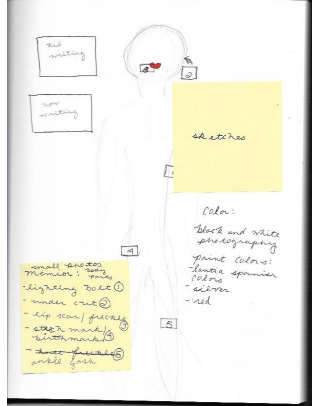 kid
writing
now
writing
2
sketches
4
5
color:
black and white
photography
paint colors:
colors
- silver
- red
small photos
memior: body
parts
- lighting bolt ①
- under cut ②
- lip scar/freckle ③
mark/
birthmark ④
- freckle ⑤
ankle